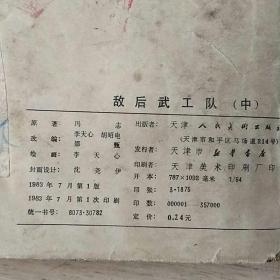 敌后武工队（中）
原著：冯志
改编：李天心 胡昭电
邵甄
绘画：李天心
封面设计：沈尧伊
1983年7月第1版
1983年7月第1次印刷
统一书号：8073·30782
出版者：天津人民美术出版社
（天津市和平区马场道214号）
发行者：天津市新华书店
印刷者：天津美术印刷厂印
开本：787×1092毫米 1/64
印张：3·1875
印数：000001—357000
定价：0.24元